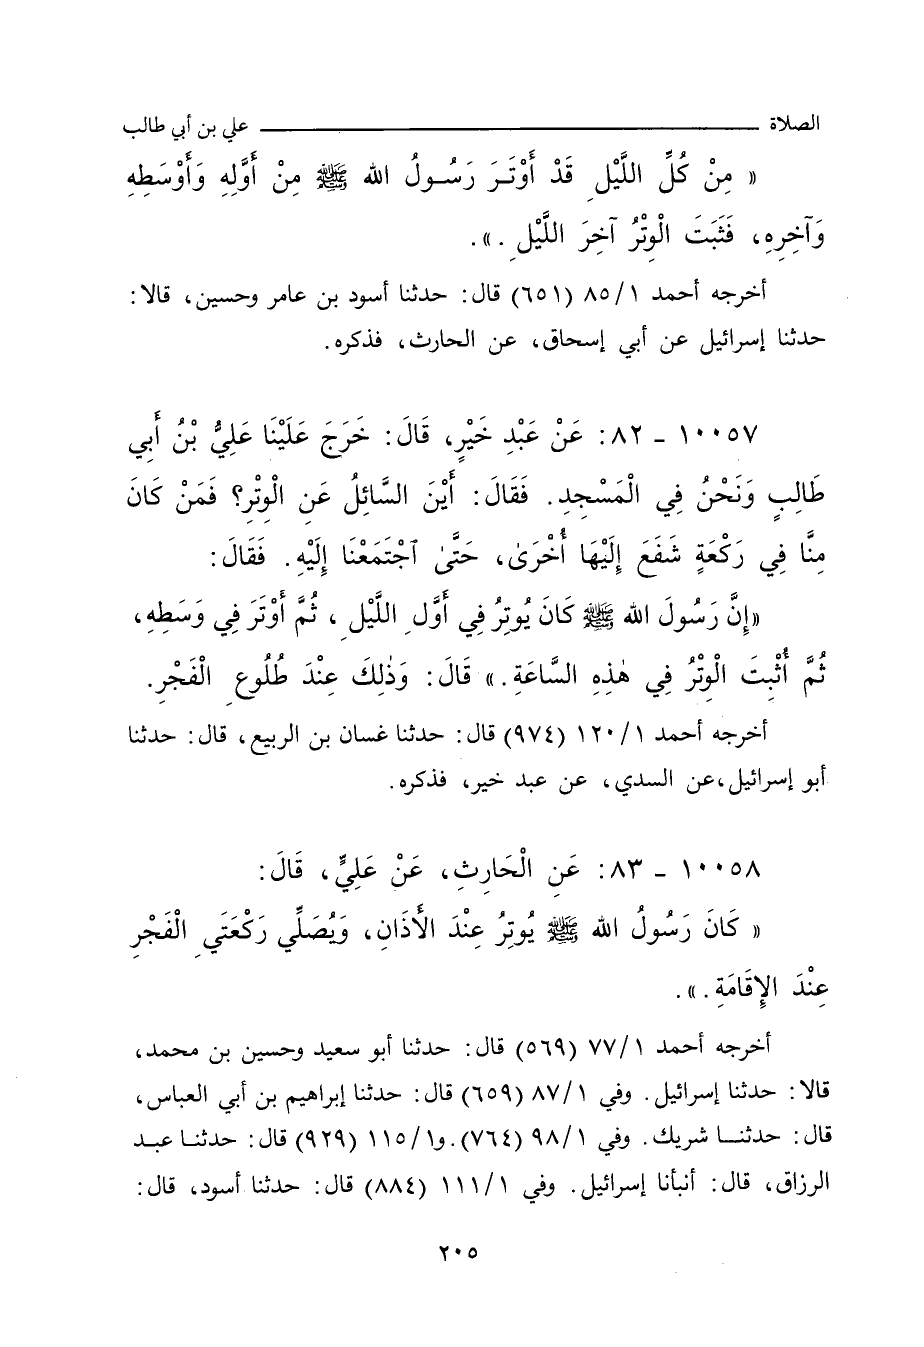 الصلاة ــــــــــــــــــــ علي بن أبي طالب
« مِنْ كُلِّ اللَّيْلِ قَدْ أَوْتَرَ رَسُولُ الله ﷺ مِنْ أَوَّلِهِ وَأَوْسَطِهِ
وَآخِرِهِ، فَثَبَتَ الْوِتْرُ آخِرَ اللَّيْلِ .».
أخرجه أحمد ٨٥/١ (٦٥١) قال: حدثنا أسود بن عامر وحسين، قالا:
حدثنا إسرائيل عن أبي إسحاق، عن الحارث، فذكره.
١٠٠٥٧ ـ ٨٢: عَنْ عَبْدِ خَيْرٍ، قَالَ: خَرَجَ عَلَيْنَا عَلِيُّ بْنُ أَبِي
طَالِبٍ وَنَحْنُ فِي الْمَسْجِدِ. فَقَالَ: أَيْنَ السَّائِلُ عَنِ الْوِتْرِ؟ فَمَنْ كَانَ
مِنَّا فِي رَكْعَةٍ شَفَعَ إِلَيْهَا أُخْرَىٰ، حَتَّىٰ ٱجْتَمَعْنَا إِلَيْهِ. فَقَالَ:
«إِنَّ رَسُولَ الله ﷺ كَانَ يُوتِرُ فِي أَوَّلِ اللَّيْلِ ، ثُمَّ أَوْتَرَ فِي وَسَطِهِ،
ثُمَّ أُثْبِتَ الْوِتْرُ فِي هٰذِهِ السَّاعَةِ.» قَالَ: وَذٰلِكَ عِنْدَ طُلُوعِ الْفَجْرِ.
أخرجه أحمد ١٢٠/١ (٩٧٤) قال: حدثنا غسان بن الربيع، قال: حدثنا
أبو إسرائيل،عن السدي، عن عبد خير، فذكره.
١٠٠٥٨ ـ ٨٣: عَنِ الْحَارِثِ، عَنْ عَلِيٍّ، قَالَ:
« كَانَ رَسُولُ الله ﷺ يُوتِرُ عِنْدَ الأَذَانِ، وَيُصَلِّي رَكْعَتَيِ الْفَجْرِ
عِنْدَ الإِقَامَةِ .».
أخرجه أحمد ٧٧/١ (٥٦٩) قال: حدثنا أبو سعيد وحسين بن محمد،
قالا: حدثنا إسرائيل. وفي ٨٧/١ (٦٥٩) قال: حدثنا إبراهيم بن أبي العباس،
قال: حدثنـا شريك. وفي ٩٨/١ (٧٦٤).و١١٥/١ (٩٢٩) قال: حدثنـا عبـد
الرزاق، قال: أنبأنا إسرائيل. وفي ١١١/١ (٨٨٤) قال: حدثنا أسود، قال:
٢٠٥